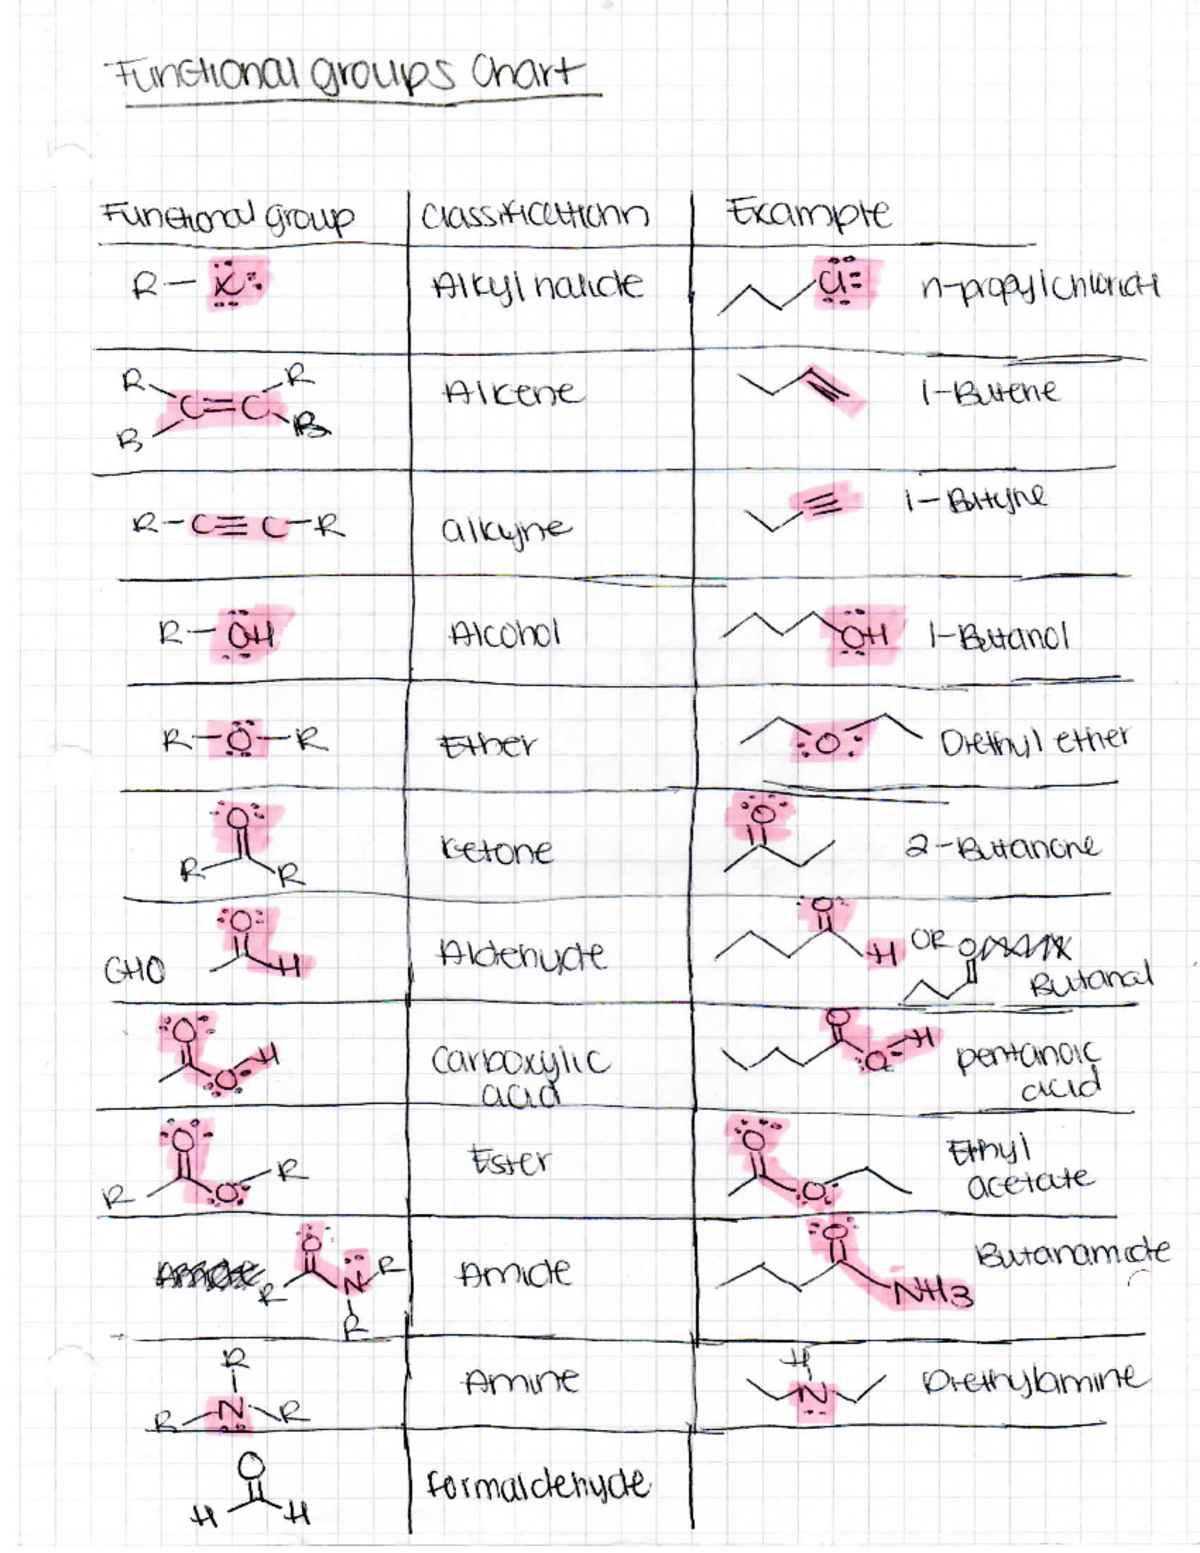 Functional groups Chart
Functional group Classificationn Example
R-X: Alkyl halide Cl: n-propylchloride
R R
C=C Alkene 1-Butene
R R
R-C≡C-R alkyne 1-Butyne
R-OH Alcohol OH 1-Butanol
R-O-R Ether :O: Diethyl ether
O O
R R Ketone 2-Butanone
:O: O
CHO H Aldehyde H OR O
Butanal
O H Carboxylic O H pentanoic
O acid O acid
O O Ethyl
R O R Ester O acetate
O O Butanamide
R N R Amide NH3
R
R H
R N R Amine N Diethylamine
O
H H formaldehyde